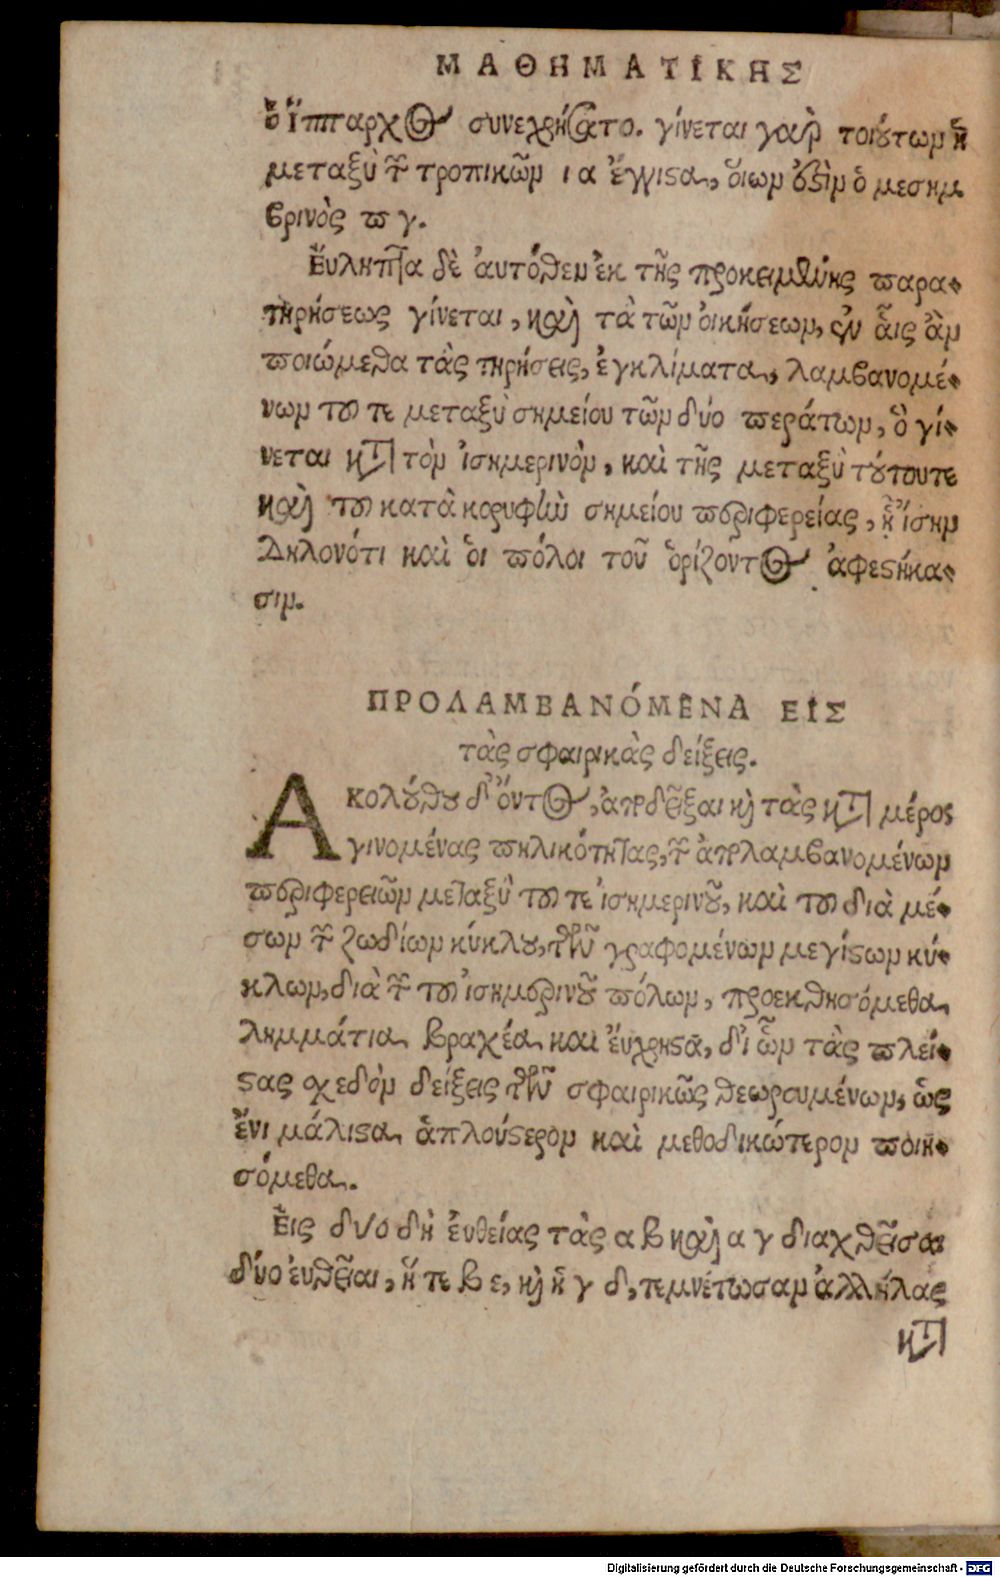 ΜΑΘΗΜΑΤΙΚΗΣ
ὁ Ἵππαρχος συνεχρήσατο. γίνεται γὰρ τοιούτων ἡ
μεταξὺ τῶν τροπικῶν ια ἔγγιστα, οἵων ἐστὶν ὁ μεσημ
βρινὸς πγ.
Ἔυληπτα δὲ ἀυτόθεν ἐκ τῆς προκειμένης παρα-
τηρήσεως γίνεται, καὶ τὰ τῶν ὀικήσεων, ἐν ἇις ἂν
ποιώμεθα τὰς τηρήσεις, ἐγκλίματα, λαμβανομέ-
νων τοῦ τε μεταξὺ σημείου τῶν δύο περάτων, ὃ γί-
νεται κατὰ τὸν ἰσημερινὸν, καὶ τῆς μεταξὺ τούτου τε
καὶ τοῦ κατὰ κορυφὴν σημείου περιφερείας, ᾗ ἴσην
δηλονότι καὶ ὁι πόλοι τοῦ ὁρίζοντος ἀφεστήκα-
σιν.
ΠΡΟΛΑΜΒΑΝΌΜΕΝΑ ΕΙΣ
τὰς σφαιρικὰς δείξεις.
Ακολούθου δ' ὄντος, ἀποδεῖξαι καὶ τὰς κατὰ μέρος
γινομένας πηλικότητας, τῶν ἀπολαμβανομένων
περιφερειῶν μεταξὺ τοῦ τε ἰσημερινοῦ, καὶ τοῦ διὰ μέ-
σων τῶν ζωδίων κύκλου, τῶν γραφομένων μεγίστων κύ-
κλων, διὰ τῶν τοῦ ἰσημερινοῦ πόλων, προεκθησόμεθα
λημμάτια βραχέα καὶ ἔυχρηστα, δι' ὧν τὰς πλεί-
στας σχεδὸν δείξεις τῶν σφαιρικῶς θεωρουμένων, ὡς
ἔνι μάλιστα ἁπλούστερον καὶ μεθοδικώτερον ποιη-
σόμεθα.
Ἐις δύο δὴ ἐυθείας τὰς αβ καὶ αγ διαχθεῖσαι
δύο ἐυθεῖαι, ἥ τε βε, καὶ ἡ γδ, τεμνέτωσαν ἀλλήλας
κατὰ